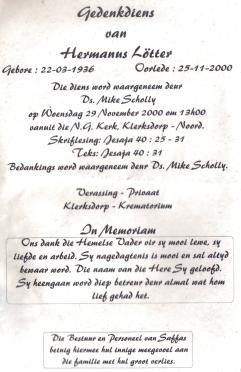 Gedenkdiens
van
Hermanus Lötter
Gebore : 22-03-1936 Oorlede : 25-11-2000
Die diens word waargeneem deur
Ds. Mike Scholly
op Woensdag 29 November 2000 om 13h00
vanuit die N.G. Kerk, Klerksdorp - Noord.
Skriflesing: Jesaja 40 : 25 - 31
Teks: Jesaja 40 : 31
Bedankings word waargeneem deur Ds. Mike Scholly.
Verassing - Privaat
Klerksdorp - Krematorium
In Memoriam
Ons dank die Hemelse Vader vir sy mooi lewe, sy
liefde en arbeid. Sy nagedagtenis is mooi en sal altyd
bewaar word. Die naam van die Here Sy geloofd.
Sy heengaan word diep betreur deur almal wat hom
lief gehad het.
Die Bestuur en Personeel van Saffas
betuig hiermee hul innige meegevoel aan
die familie met hul groot verlies.